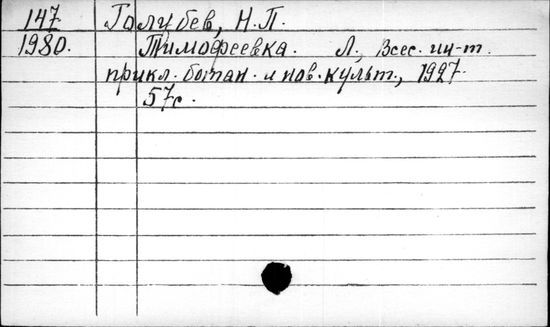 147 Голубев, Н.П.
1980. Тимофеевка. Л., Всес. ин-т.
прикл. ботан. и нов. культ., 1927.
57с.